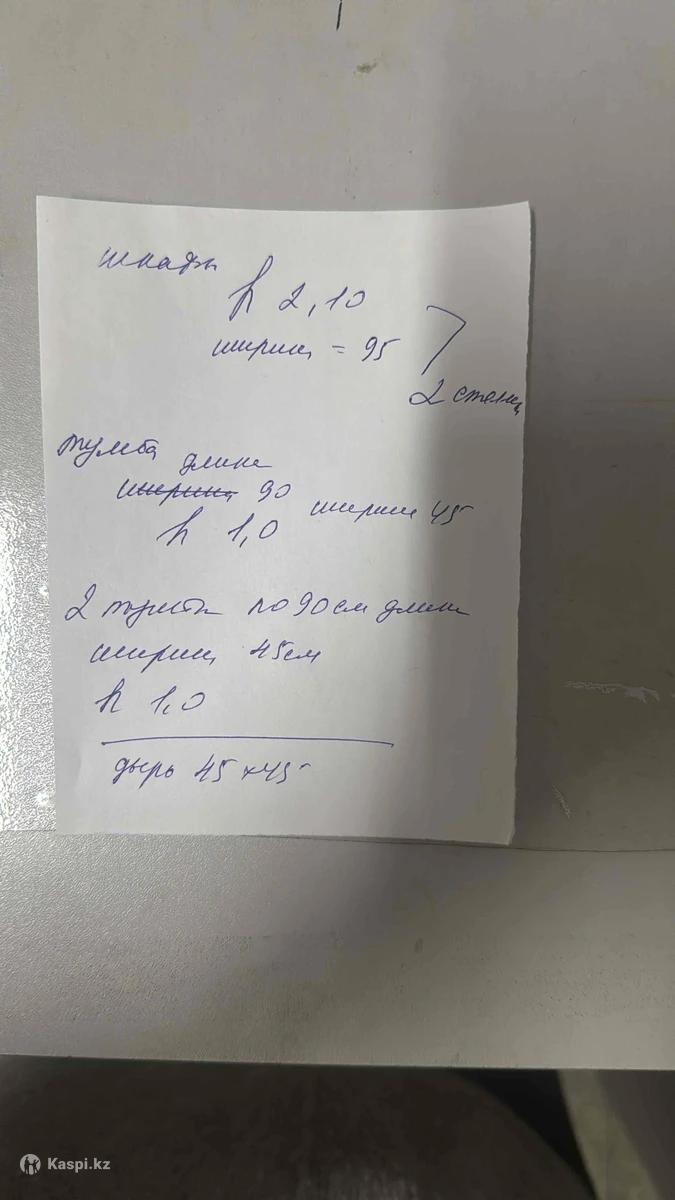 шкафы
h 2,10
ширин = 95
2 стенц
тумба длина
ширина 90 ширин 45
h 1,0
2 тумбы по 90 см длин
ширин 45см
h 1,0
дыры 45 x 45
Kaspi.kz